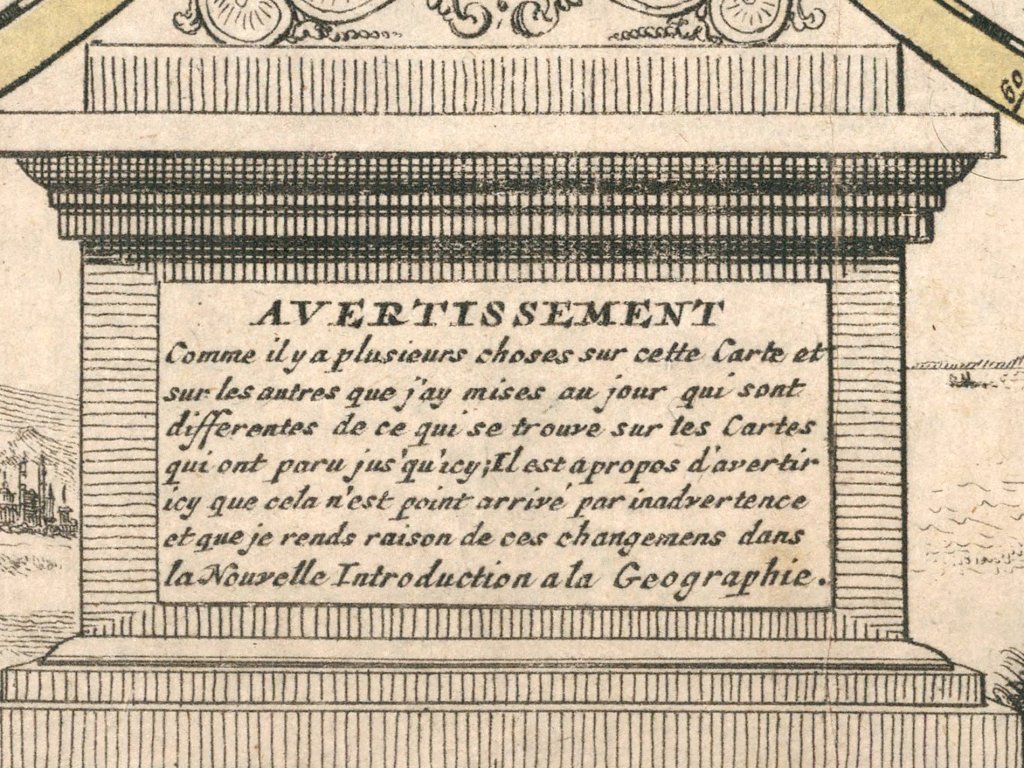 60
AVERTISSEMENT
Comme il y a plusieurs choses sur cette Carte et
sur les autres que j'ay mises au jour qui sont
differentes de ce qui se trouve sur les Cartes
qui ont paru jus'qu'icy; Il est apropos d'avertir
icy que cela n'est point arrivé par inadvertence
et que je rends raison de ces changemens dans
la Nouvelle Introduction a la Geographie.